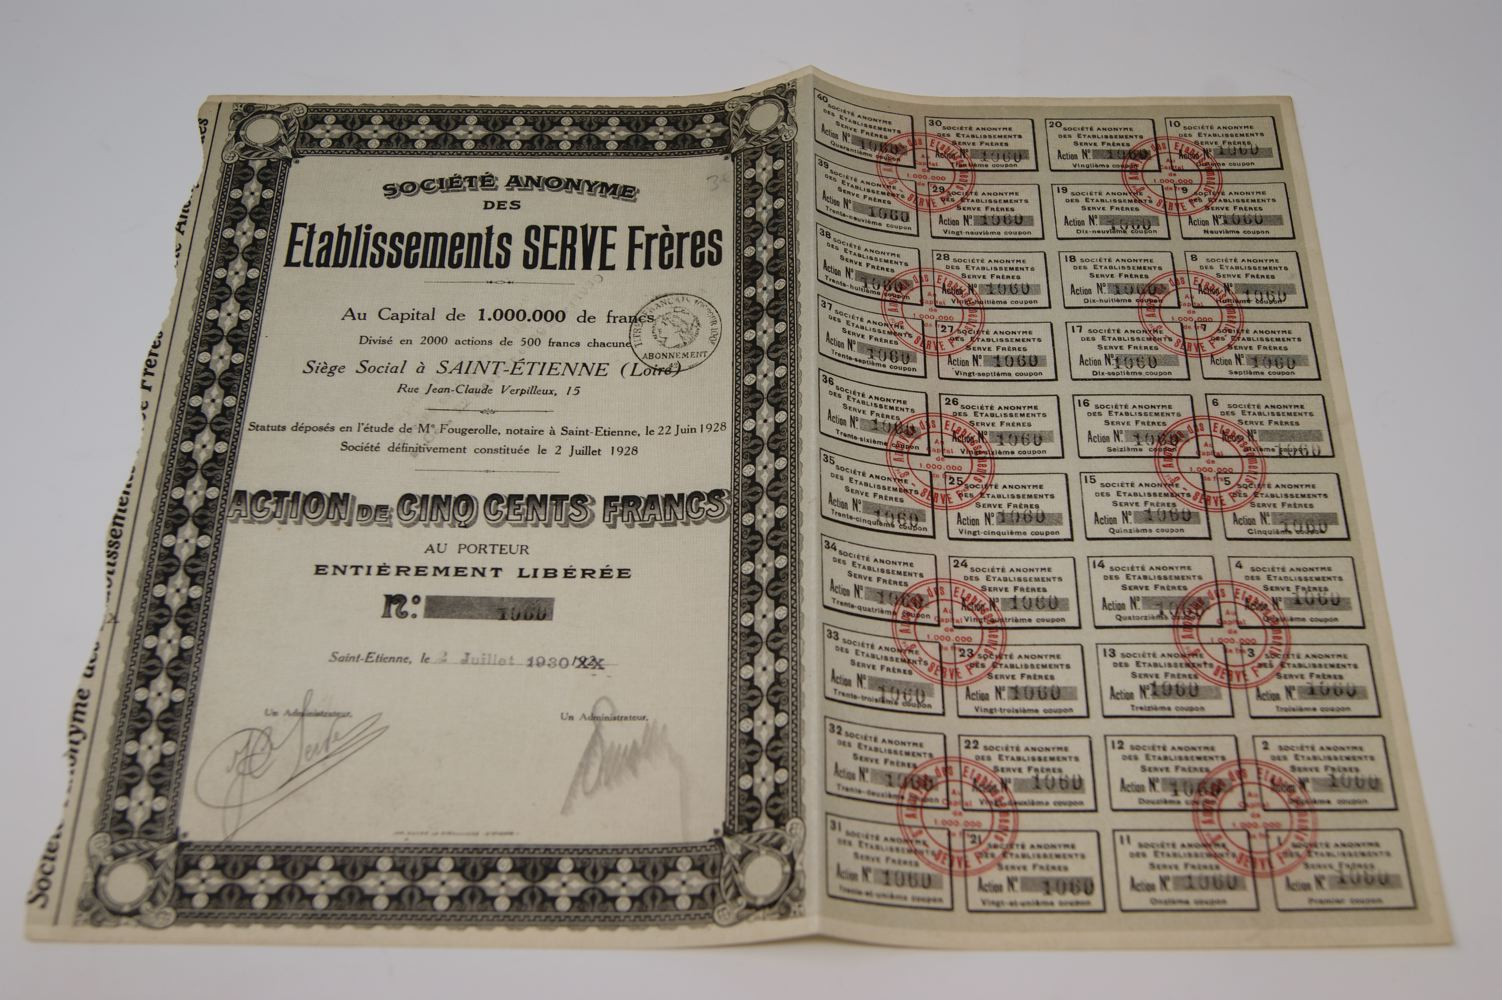 SOCIÉTÉ ANONYME
DES
Etablissements SERVE Frères
Au Capital de 1.000.000 de francs
Divisé en 2000 actions de 500 francs chacune
Siège Social à SAINT-ÉTIENNE (Loire)
Rue Jean-Claude Verpilleux, 15
ABONNEMENT
Statuts déposés en l'étude de Me Fougerolle, notaire à Saint-Etienne, le 22 Juin 1928
Société définitivement constituée le 2 Juillet 1928
ACTION DE CINQ CENTS FRANCS
AU PORTEUR
ENTIÈREMENT LIBÉRÉE
N°: 1060
Saint-Etienne, le 2 Juillet 1930
Un Administrateur,
Un Administrateur,
40 SOCIÉTÉ ANONYME
DES ETABLISSEMENTS
SERVE FRÈRES
Action N° 1060
Quarantième coupon
30 SOCIÉTÉ ANONYME
DES ETABLISSEMENTS
SERVE FRÈRES
Action N° 1060
Trentième coupon
20 SOCIÉTÉ ANONYME
DES ETABLISSEMENTS
SERVE FRÈRES
Action N° 1060
Vingtième coupon
10 SOCIÉTÉ ANONYME
DES ETABLISSEMENTS
SERVE FRÈRES
Action N° 1060
Dixième coupon
39 SOCIÉTÉ ANONYME
DES ETABLISSEMENTS
SERVE FRÈRES
Action N° 1060
Trente-neuvième coupon
29 SOCIÉTÉ ANONYME
DES ETABLISSEMENTS
SERVE FRÈRES
Action N° 1060
Vingt-neuvième coupon
19 SOCIÉTÉ ANONYME
DES ETABLISSEMENTS
SERVE FRÈRES
Action N° 1060
Dix-neuvième coupon
9 SOCIÉTÉ ANONYME
DES ETABLISSEMENTS
SERVE FRÈRES
Action N° 1060
Neuvième coupon
38 SOCIÉTÉ ANONYME
DES ETABLISSEMENTS
SERVE FRÈRES
Action N° 1060
Trente-huitième coupon
28 SOCIÉTÉ ANONYME
DES ETABLISSEMENTS
SERVE FRÈRES
Action N° 1060
Vingt-huitième coupon
18 SOCIÉTÉ ANONYME
DES ETABLISSEMENTS
SERVE FRÈRES
Action N° 1060
Dix-huitième coupon
8 SOCIÉTÉ ANONYME
DES ETABLISSEMENTS
SERVE FRÈRES
Action N° 1060
Huitième coupon
37 SOCIÉTÉ ANONYME
DES ETABLISSEMENTS
SERVE FRÈRES
Action N° 1060
Trente-septième coupon
27 SOCIÉTÉ ANONYME
DES ETABLISSEMENTS
SERVE FRÈRES
Action N° 1060
Vingt-septième coupon
17 SOCIÉTÉ ANONYME
DES ETABLISSEMENTS
SERVE FRÈRES
Action N° 1060
Dix-septième coupon
7 SOCIÉTÉ ANONYME
DES ETABLISSEMENTS
SERVE FRÈRES
Action N° 1060
Septième coupon
36 SOCIÉTÉ ANONYME
DES ETABLISSEMENTS
SERVE FRÈRES
Action N° 1060
Trente-sixième coupon
26 SOCIÉTÉ ANONYME
DES ETABLISSEMENTS
SERVE FRÈRES
Action N° 1060
Vingt-sixième coupon
16 SOCIÉTÉ ANONYME
DES ETABLISSEMENTS
SERVE FRÈRES
Action N° 1060
Seizième coupon
6 SOCIÉTÉ ANONYME
DES ETABLISSEMENTS
SERVE FRÈRES
Action N° 1060
Sixième coupon
35 SOCIÉTÉ ANONYME
DES ETABLISSEMENTS
SERVE FRÈRES
Action N° 1060
Trente-cinquième coupon
25 SOCIÉTÉ ANONYME
DES ETABLISSEMENTS
SERVE FRÈRES
Action N° 1060
Vingt-cinquième coupon
15 SOCIÉTÉ ANONYME
DES ETABLISSEMENTS
SERVE FRÈRES
Action N° 1060
Quinzième coupon
5 SOCIÉTÉ ANONYME
DES ETABLISSEMENTS
SERVE FRÈRES
Action N° 1060
Cinquième coupon
34 SOCIÉTÉ ANONYME
DES ETABLISSEMENTS
SERVE FRÈRES
Action N° 1060
Trente-quatrième coupon
24 SOCIÉTÉ ANONYME
DES ETABLISSEMENTS
SERVE FRÈRES
Action N° 1060
Vingt-quatrième coupon
14 SOCIÉTÉ ANONYME
DES ETABLISSEMENTS
SERVE FRÈRES
Action N° 1060
Quatorzième coupon
4 SOCIÉTÉ ANONYME
DES ETABLISSEMENTS
SERVE FRÈRES
Action N° 1060
Quatrième coupon
33 SOCIÉTÉ ANONYME
DES ETABLISSEMENTS
SERVE FRÈRES
Action N° 1060
Trente-troisième coupon
23 SOCIÉTÉ ANONYME
DES ETABLISSEMENTS
SERVE FRÈRES
Action N° 1060
Vingt-troisième coupon
13 SOCIÉTÉ ANONYME
DES ETABLISSEMENTS
SERVE FRÈRES
Action N° 1060
Treizième coupon
3 SOCIÉTÉ ANONYME
DES ETABLISSEMENTS
SERVE FRÈRES
Action N° 1060
Troisième coupon
32 SOCIÉTÉ ANONYME
DES ETABLISSEMENTS
SERVE FRÈRES
Action N° 1060
Trente-deuxième coupon
22 SOCIÉTÉ ANONYME
DES ETABLISSEMENTS
SERVE FRÈRES
Action N° 1060
Vingt-deuxième coupon
12 SOCIÉTÉ ANONYME
DES ETABLISSEMENTS
SERVE FRÈRES
Action N° 1060
Douzième coupon
2 SOCIÉTÉ ANONYME
DES ETABLISSEMENTS
SERVE FRÈRES
Action N° 1060
Deuxième coupon
31 SOCIÉTÉ ANONYME
DES ETABLISSEMENTS
SERVE FRÈRES
Action N° 1060
Trente-et-unième coupon
21 SOCIÉTÉ ANONYME
DES ETABLISSEMENTS
SERVE FRÈRES
Action N° 1060
Vingt-et-unième coupon
11 SOCIÉTÉ ANONYME
DES ETABLISSEMENTS
SERVE FRÈRES
Action N° 1060
Onzième coupon
1 SOCIÉTÉ ANONYME
DES ETABLISSEMENTS
SERVE FRÈRES
Action N° 1060
Premier coupon